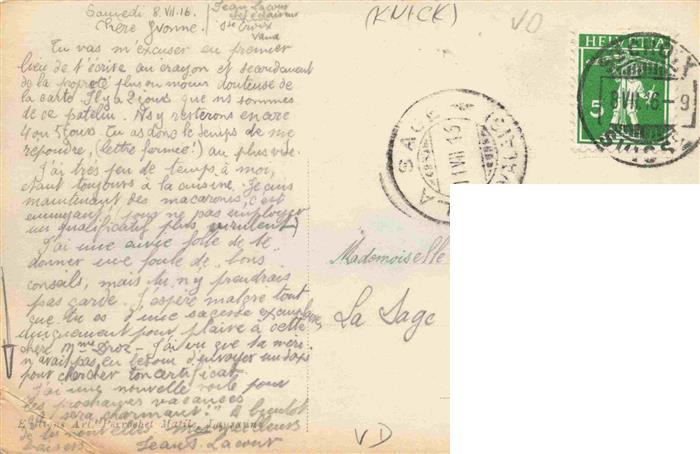 Samedi 8.VII.16.
Chère Yvonne.
Jean Lacour
Ste Croix
Vaud
(KNICK)
VD
Tu vas m'excuser en premier
lieu de t'écrire au crayon et secondement
de la propreté plus ou moins douteuse de
la carte. Il y a 2 jours que ns sommes
de ce patelin. Ns y resterons encore
4 ou 5 jours. Tu as donc le temps de me
répondre, (lettre fermée!) au plus vite.
J'ai très peu de temps à moi,
étant toujours à la cuisine. Je cuis
maintenant des macaronis, c'est
ennuyant! (pour ne pas employer
un qualificatif plus virulent)
J'ai une envie folle de te
donner une foule de "bons
conseils, mais tu n'y prendrais
pas garde. J'espère malgré tout
que tu es d'une sagesse exemplaire,
uniquement pour plaire à cette
chère Mme Droz. J'ai vu que ta mère
n'avait pas eu besoin d'envoyer
pour chercher ton certificat.
J'ai une nouvelle voile pour
les prochaines vacances
sera charmant!" A bientôt
de tes nouvelles. meilleurs
baisers Jean Lacour
Editions Art. Perrochet Matile, Lausanne
HELVETIA
5
STE CROIX
8 VII 16 - 9
(SUISSE)
LA SAGE
VII 16
Mademoiselle
La Sage
VD